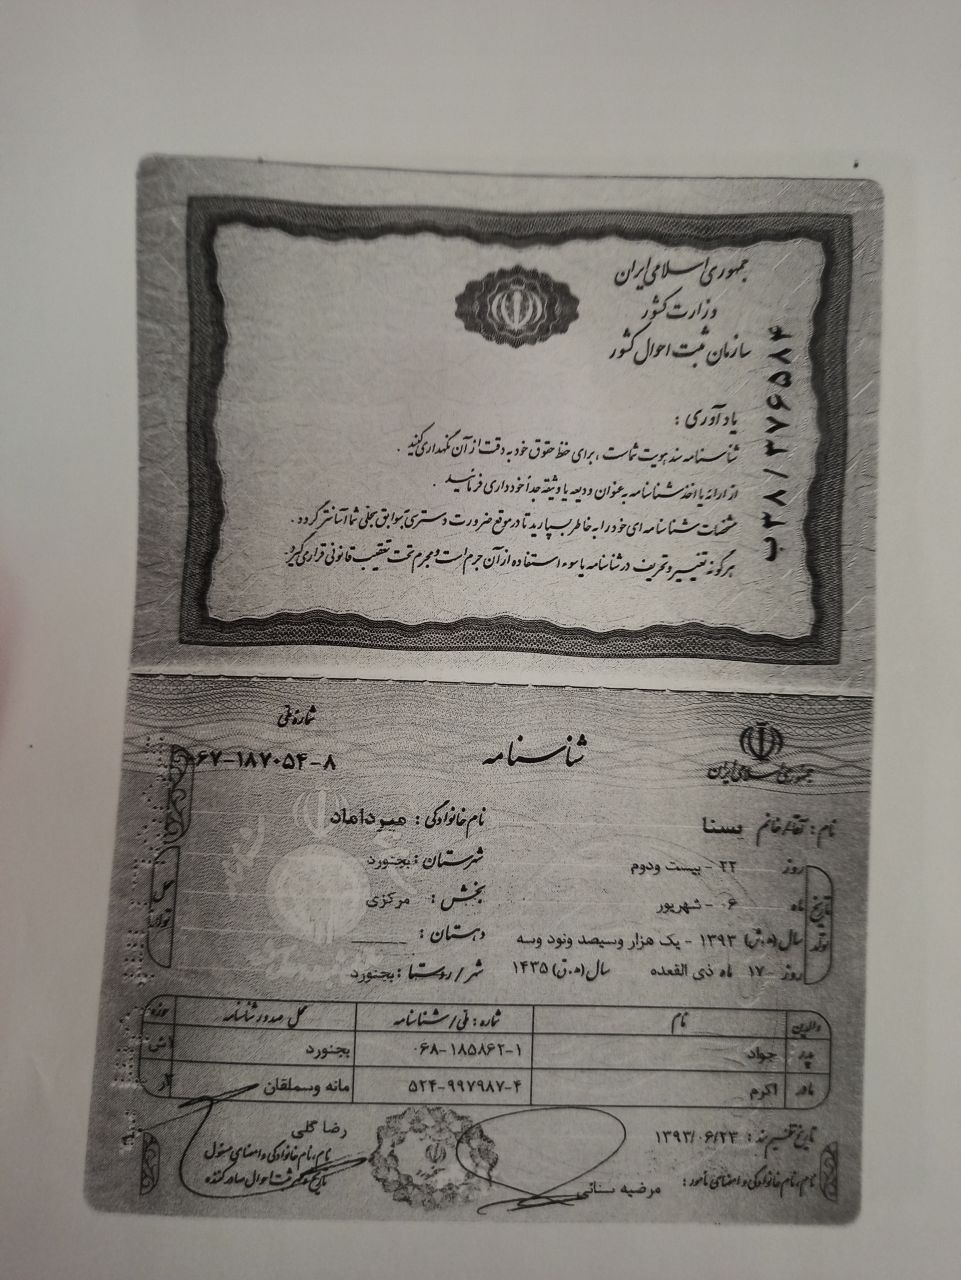 جمهوری اسلامی ایران
وزارت کشور
سازمان ثبت احوال کشور
ب۳۸/۳۷۶۵۸۴
یادآوری :
شناسنامه سند هویت شماست ، برای حفظ حقوق خود به دقت از آن نگهداری کنید .
از ارائه یا اخذ شناسنامه به عنوان ودیعه یا وثیقه جداً خودداری فرمائید .
مشخصات شناسنامه ای خود را به خاطر بسپارید تا در موقع ضرورت دسترسی به سوابق سجلی شما آسانتر گردد .
هرگونه تغییر و تحریف در شناسنامه یا سوء استفاده از آن جرم است و مجرم تحت تعقیب قانونی قرار می گیرد.
جمهوری اسلامی ایران
شناسنامه
شماره ملی
۰۶۷-۱۸۷۰۵۴-۸
نام : آقا/خانم یسنا
نام خانوادگی : میرداماد
تاریخ تولد
روز ۲۲ - بیست ودوم
ماه ۰۶ - شهریور
سال (ه.ش) ۱۳۹۳ - یک هزار وسیصد ونود وسه
روز ۱۷ ماه ذی القعده سال (ه.ق) ۱۴۳۵
محل تولد
شهرستان : بجنورد
بخش : مرکزی
دهستان :
شهر / روستا : بجنورد
والدین نام شماره : ملی / شناسنامه محل صدور شناسنامه حوزه
پدر جواد ۰۶۸-۱۸۵۸۶۲-۱ بجنورد ۱ش
مادر اکرم ۵۲۴-۹۹۷۹۸۷-۴ مانه وسملقان
تاریخ تنظیم سند : ۱۳۹۳/۰۶/۲۳
نام، نام خانوادگی و امضای مامور : مرضیه سنائی
رضا گلی
نام، نام خانوادگی و امضای مسئول
ثبت احوال صادر کننده